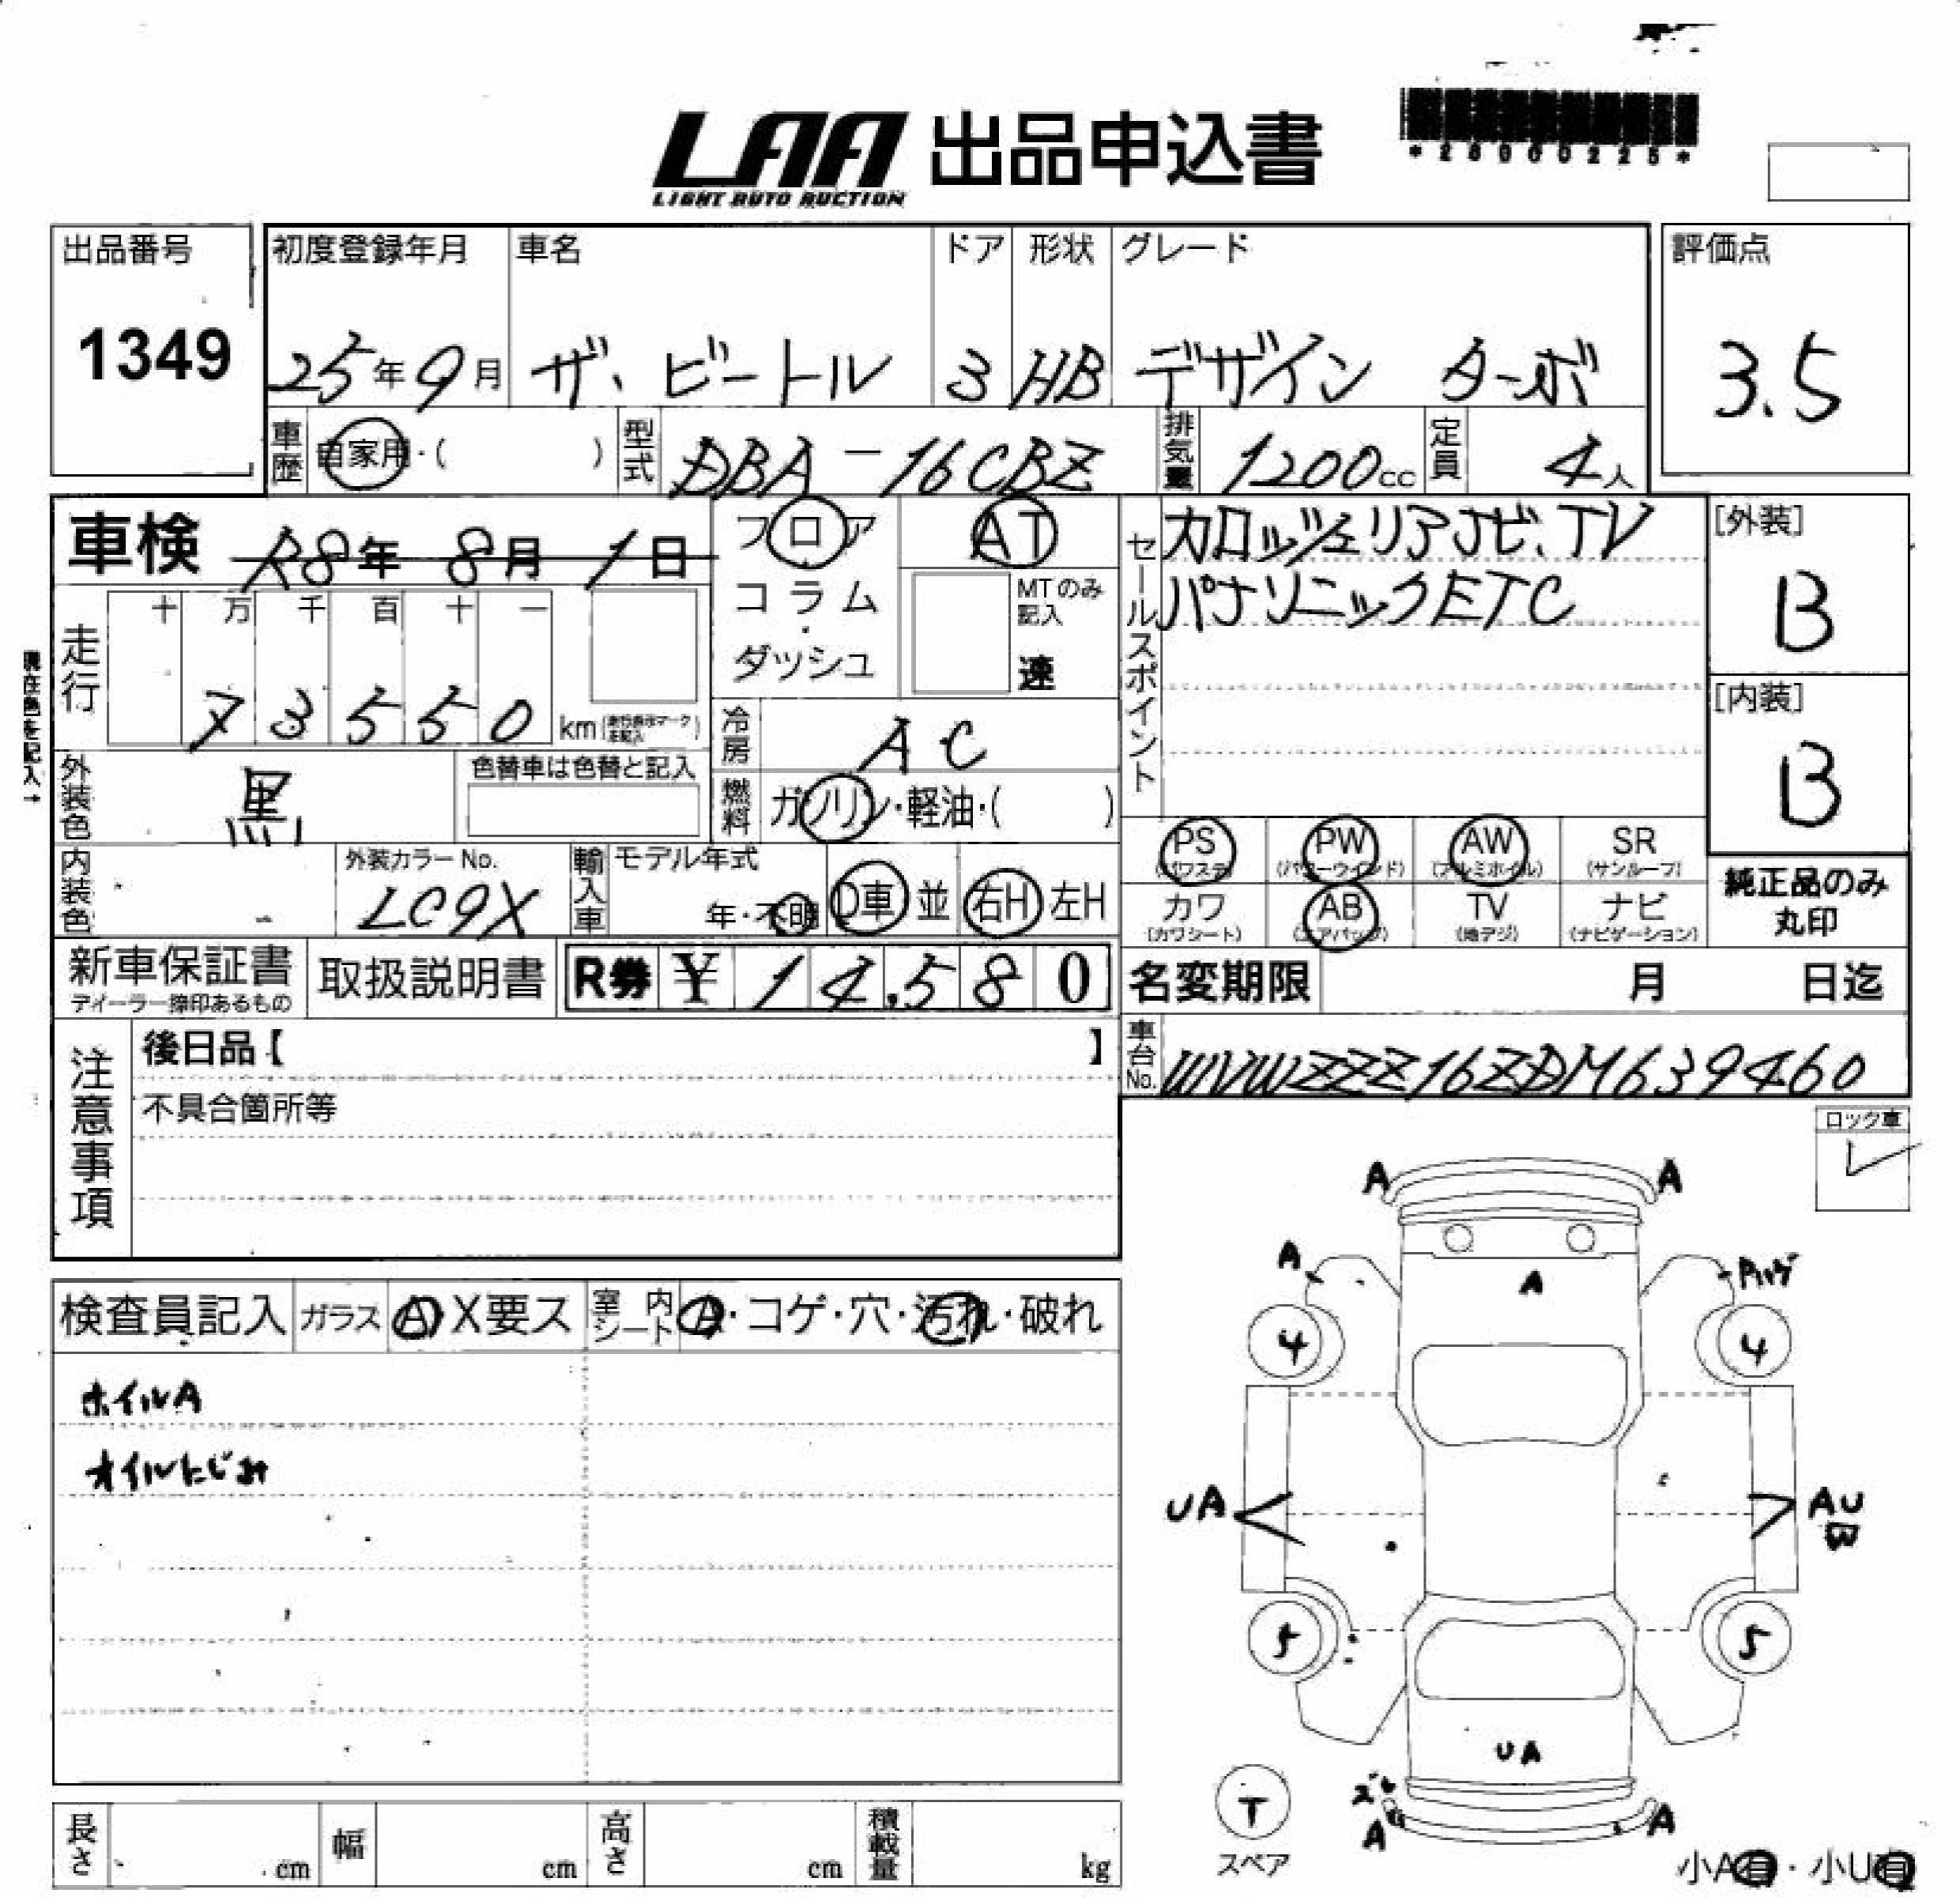 LAA 出品申込書
LIGHT AUTO AUCTION
出品番号 初度登録年月 車名 ドア 形状 グレード 評価点
1349 25年9月 ザ・ビートル 3 HB デザイン ターボ 3.5
車歴 自家用・( ) 型式 DBA-16CBZ 排気量 1200cc 定員 4人
車検 R8年 8月 1日 フロア AT セールスポイント カロッツェリアナビ、TV [外装]
コラム・ MTのみ記入 パナソニックETC B
走行 十 万 千 百 十 一 ダッシュ 速
73550 km 冷房 AC [内装]
現在色を記入→
外装色 黒 色替車は色替と記入 燃料 ガソリン・軽油・( ) B
PS (パワステ) PW (パワーウインド) AW (アルミホイル) SR (サンルーフ)
内装色 外装カラーNo. LC9X 輸入車 モデル年式 年・不明 D車 並 右H 左H
カワ (カワシート) AB (エアバッグ) TV (地デジ) ナビ (ナビゲーション) 純正品のみ丸印
新車保証書 ディーラー捺印あるもの 取扱説明書 R券 ¥ 14,580 名変期限 月 日迄
注意事項 後日品【 】 車台No. WVWZZZ16ZDM639460
不具合箇所等 ロック車
検査員記入 ガラス A・X要ス 室内シート A・コゲ・穴・汚れ・破れ
ホイルA
オイルにじみ
A A
A A
4 4
UA AU
5 5
UA
A A
T
スペア
長さ cm 幅 cm 高さ cm 積載量 kg 小A有・小U有